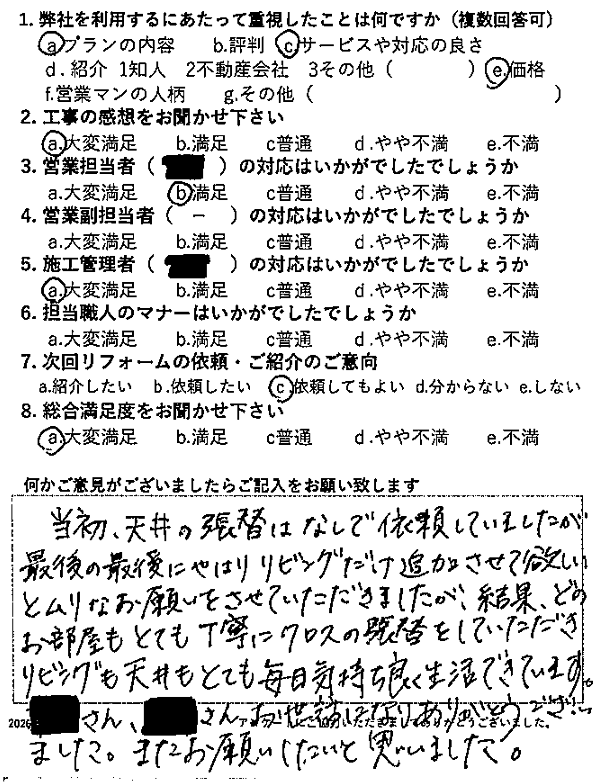 1. 弊社を利用するにあたって重視したことは何ですか（複数回答可）
a.プランの内容 b.評判 c.サービスや対応の良さ
d.紹介 1知人 2不動産会社 3その他（ ） e.価格
f.営業マンの人柄 g.その他（ ）
2. 工事の感想をお聞かせ下さい
a.大変満足 b.満足 c普通 d.やや不満 e.不満
3. 営業担当者（ ）の対応はいかがでしたでしょうか
a.大変満足 b.満足 c普通 d.やや不満 e.不満
4. 営業副担当者（ － ）の対応はいかがでしたでしょうか
a.大変満足 b.満足 c普通 d.やや不満 e.不満
5. 施工管理者（ ）の対応はいかがでしたでしょうか
a.大変満足 b.満足 c普通 d.やや不満 e.不満
6. 担当職人のマナーはいかがでしたでしょうか
a.大変満足 b.満足 c普通 d.やや不満 e.不満
7. 次回リフォームの依頼・ご紹介のご意向
a.紹介したい b.依頼したい c.依頼してもよい d.分からない e.しない
8. 総合満足度をお聞かせ下さい
a.大変満足 b.満足 c普通 d.やや不満 e.不満
何かご意見がございましたらご記入をお願い致します
当初、天井の張替はなしで依頼していましたが
最後の最後にやはりリビングだけ追加させて欲しい
とムリなお願いをさせていただきましたが、結果、どの
お部屋もとても丁寧にクロスの張替をしていただき
リビングも天井もとても毎日気持ち良く生活できています。
さん、さん、お世話になりありがとうござい
ました。またお願いしたいと思いました。